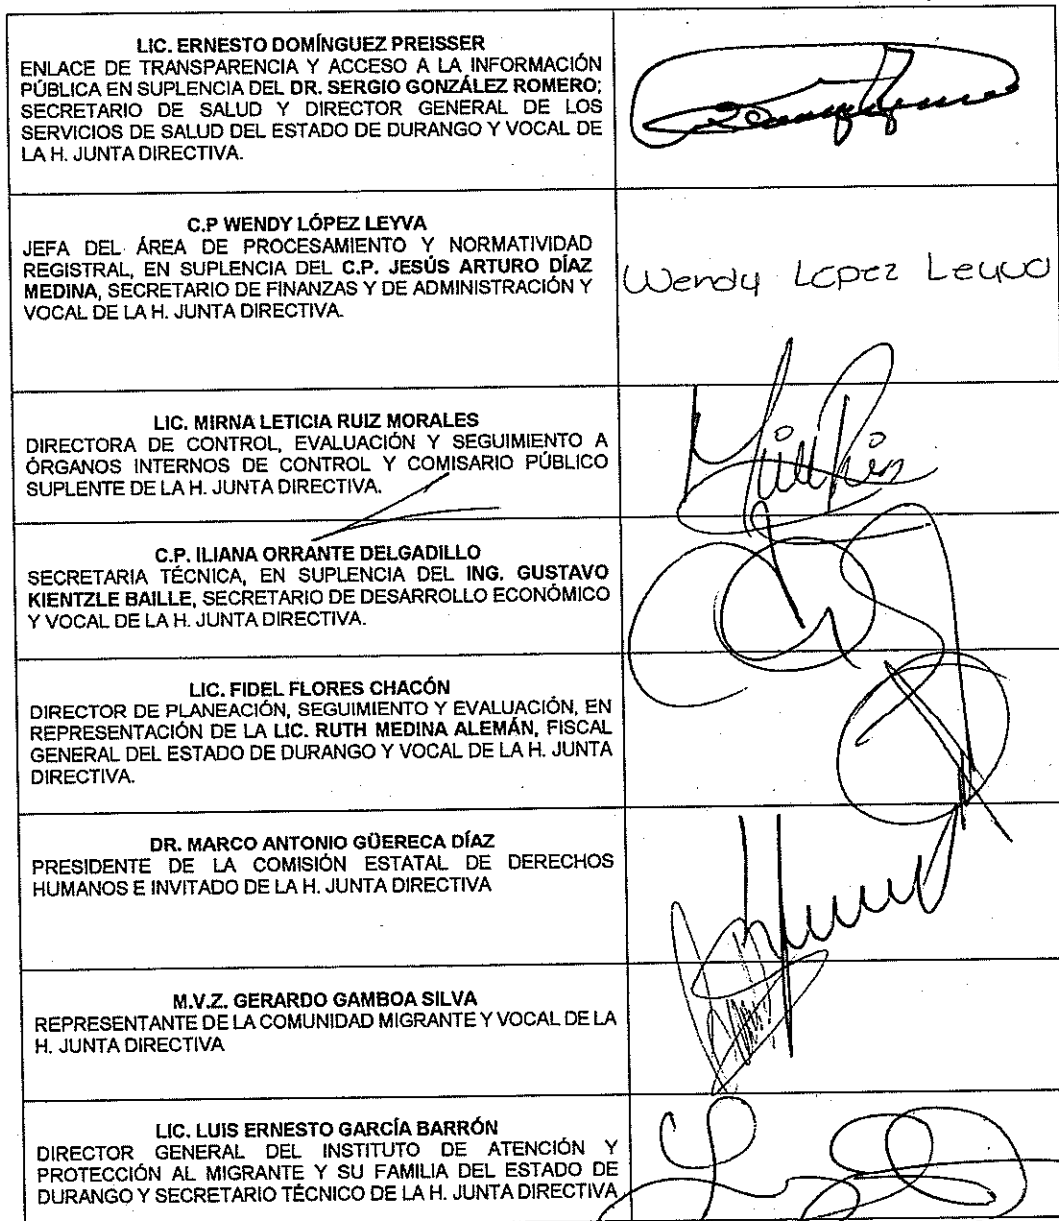 LIC. ERNESTO DOMÍNGUEZ PREISSER
ENLACE DE TRANSPARENCIA Y ACCESO A LA INFORMACIÓN
PÚBLICA EN SUPLENCIA DEL DR. SERGIO GONZÁLEZ ROMERO;
SECRETARIO DE SALUD Y DIRECTOR GENERAL DE LOS
SERVICIOS DE SALUD DEL ESTADO DE DURANGO Y VOCAL DE
LA H. JUNTA DIRECTIVA.
C.P WENDY LÓPEZ LEYVA
JEFA DEL ÁREA DE PROCESAMIENTO Y NORMATIVIDAD
REGISTRAL, EN SUPLENCIA DEL C.P. JESÚS ARTURO DÍAZ
MEDINA, SECRETARIO DE FINANZAS Y DE ADMINISTRACIÓN Y
VOCAL DE LA H. JUNTA DIRECTIVA.
Wendy López Leyva
LIC. MIRNA LETICIA RUIZ MORALES
DIRECTORA DE CONTROL, EVALUACIÓN Y SEGUIMIENTO A
ÓRGANOS INTERNOS DE CONTROL Y COMISARIO PÚBLICO
SUPLENTE DE LA H. JUNTA DIRECTIVA.
C.P. ILIANA ORRANTE DELGADILLO
SECRETARIA TÉCNICA, EN SUPLENCIA DEL ING. GUSTAVO
KIENTZLE BAILLE, SECRETARIO DE DESARROLLO ECONÓMICO
Y VOCAL DE LA H. JUNTA DIRECTIVA.
LIC. FIDEL FLORES CHACÓN
DIRECTOR DE PLANEACIÓN, SEGUIMIENTO Y EVALUACIÓN, EN
REPRESENTACIÓN DE LA LIC. RUTH MEDINA ALEMÁN, FISCAL
GENERAL DEL ESTADO DE DURANGO Y VOCAL DE LA H. JUNTA
DIRECTIVA.
DR. MARCO ANTONIO GÜERECA DÍAZ
PRESIDENTE DE LA COMISIÓN ESTATAL DE DERECHOS
HUMANOS E INVITADO DE LA H. JUNTA DIRECTIVA
M.V.Z. GERARDO GAMBOA SILVA
REPRESENTANTE DE LA COMUNIDAD MIGRANTE Y VOCAL DE LA
H. JUNTA DIRECTIVA
LIC. LUIS ERNESTO GARCÍA BARRÓN
DIRECTOR GENERAL DEL INSTITUTO DE ATENCIÓN Y
PROTECCIÓN AL MIGRANTE Y SU FAMILIA DEL ESTADO DE
DURANGO Y SECRETARIO TÉCNICO DE LA H. JUNTA DIRECTIVA